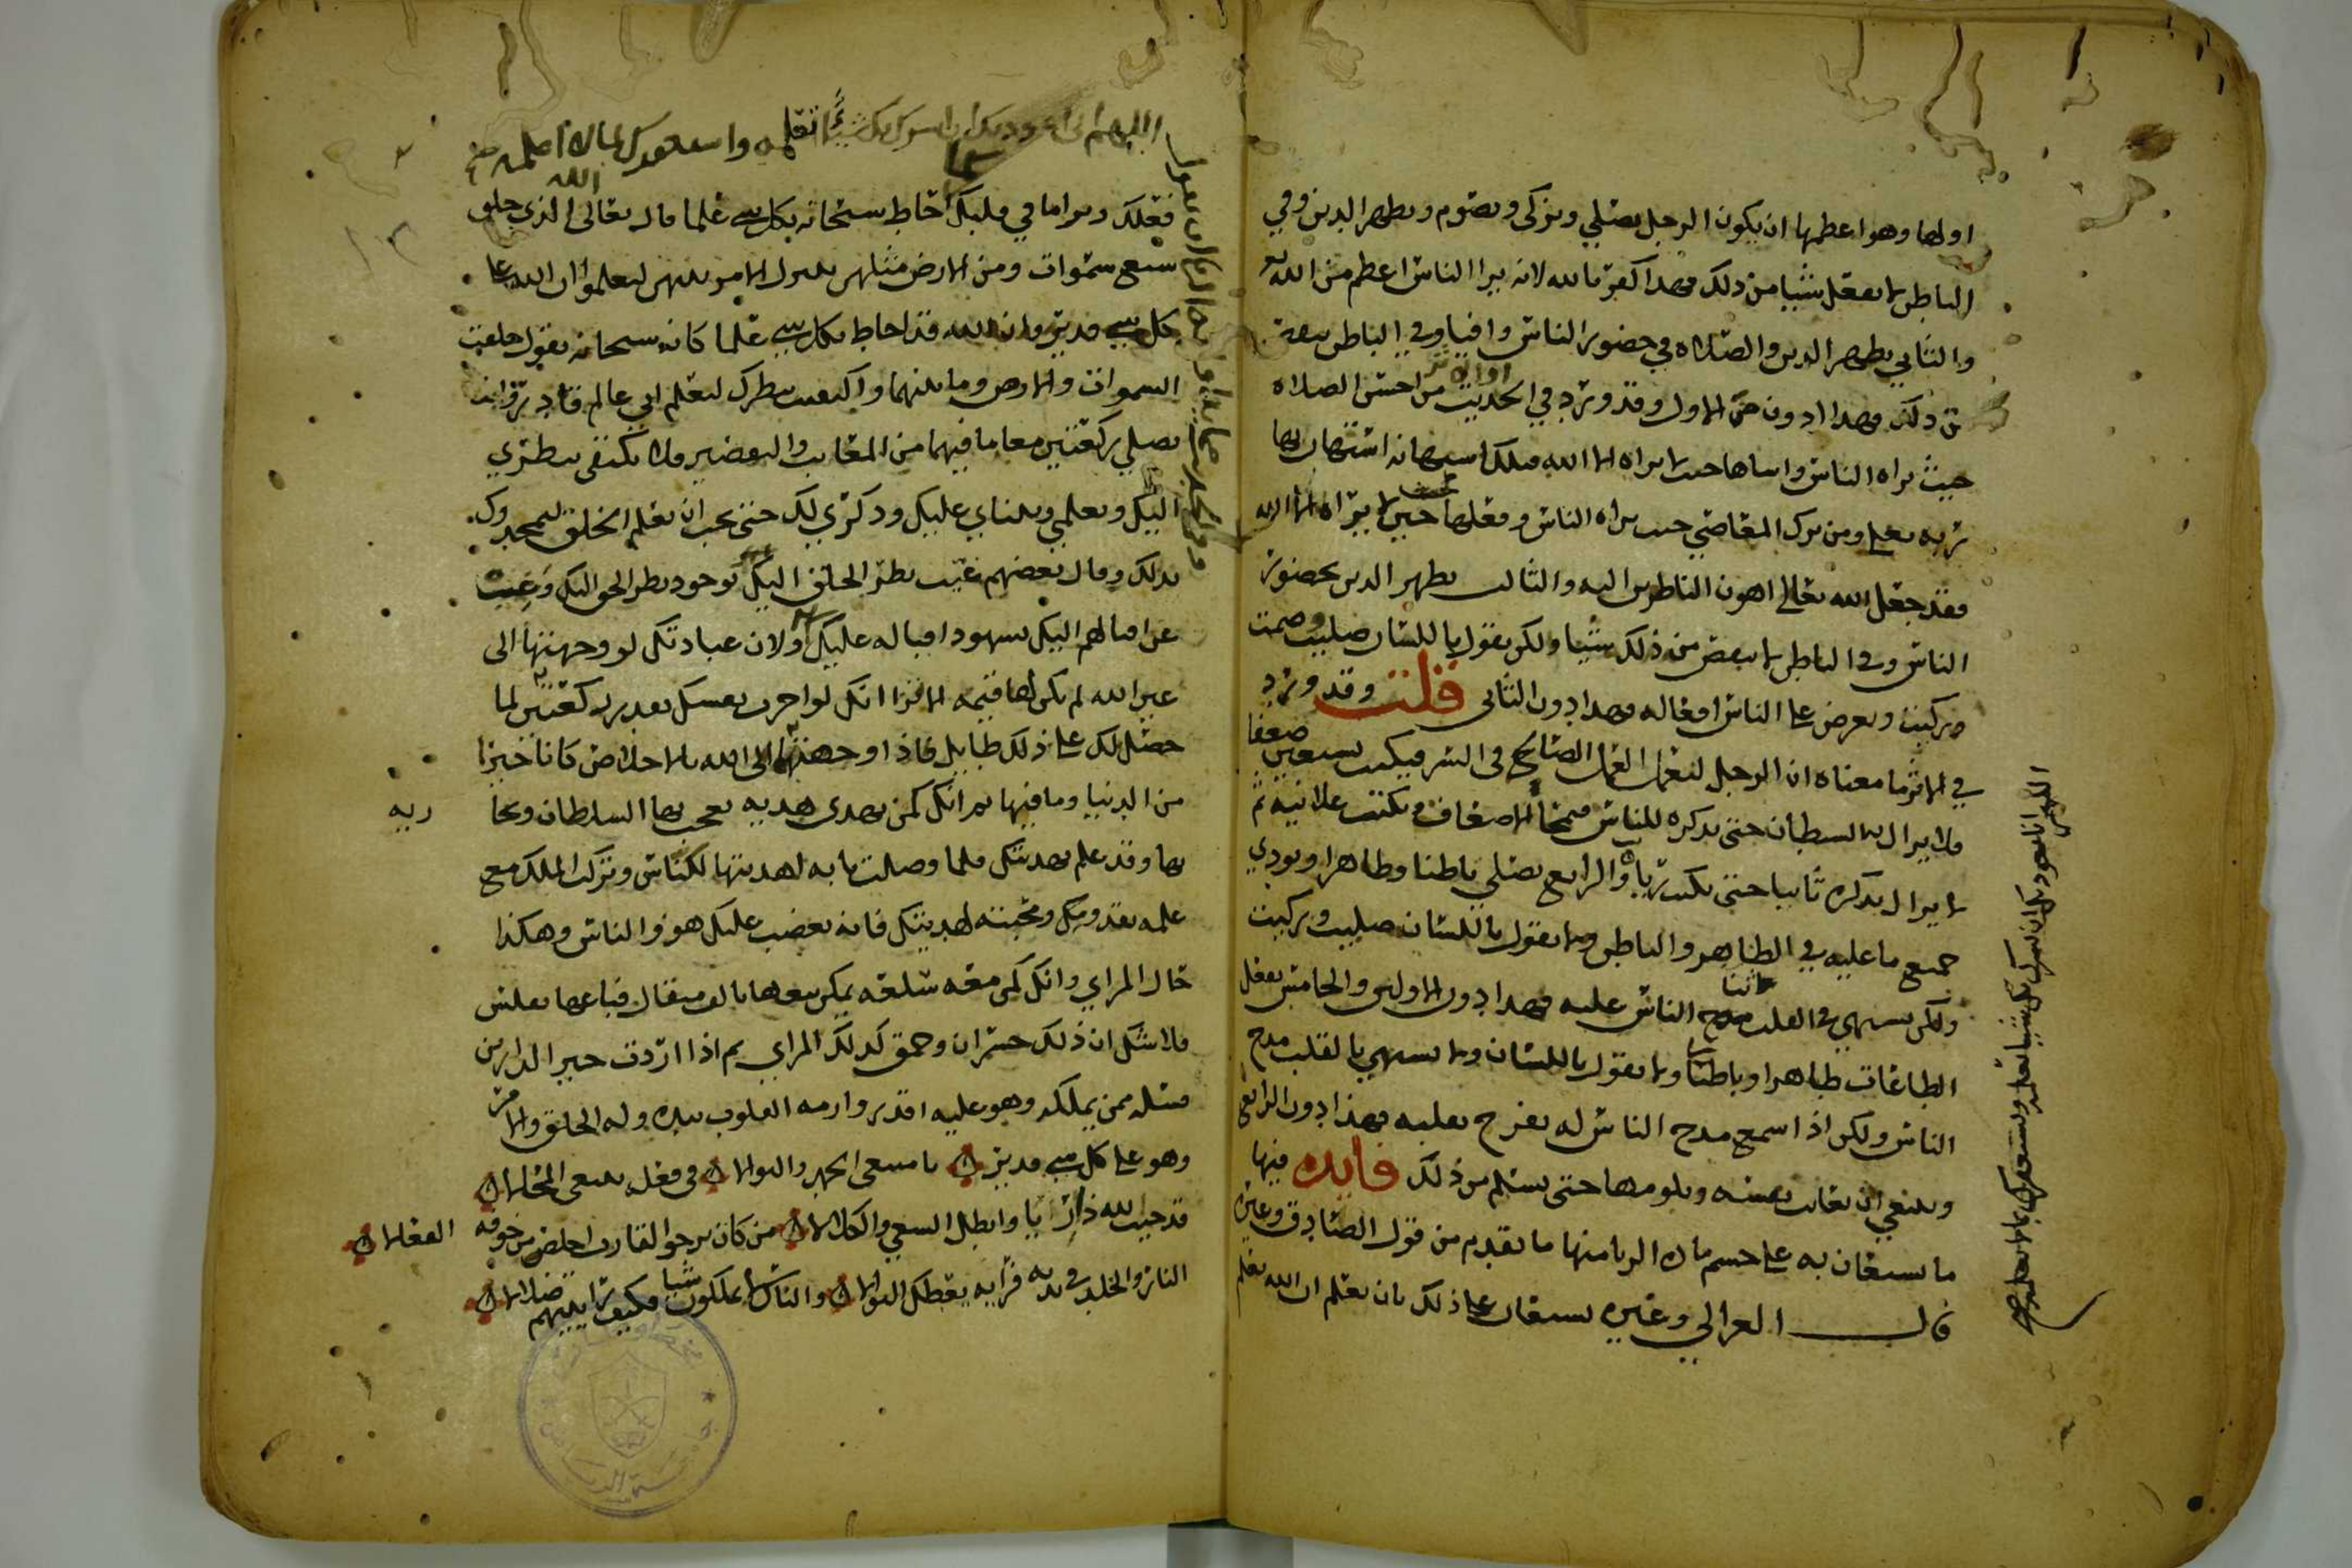 اولها وهو اعظمها ان يكون الرجل يصلي ويزكي ويصوم ويظهر الدين وفي
الباطن لا يفعل شييا من ذلك فهذا كفر بالله لانه يرا الناس اعظم من الله
والثاني يظهر الدين والصلاه في حضور الناس وافيا وفي الباطن ينقص
من ذلك فهذا ادون من الاول وقد ورد في الحديث من احسن الصلاه
حيث يراه الناس واساها حيث لا يراه الا الله فتلك استهانه استهان بها
ربه تعلى ومن ترك المعاصي حيث يراه الناس وفعلها حيث لا يراه الا الله
فقد جعل الله تعالى اهون الناظرين اليه والثالث يظهر الدين بحضور
الناس وفي الباطن لا ينقص من ذلك شييا ولكن يقول باللسان صليت وصمت
وزكيت ويعرض على الناس افعاله فهذا ادون الثاني قلت وقد ورد
في الاثر ما معناه ان الرجل ليعمل العمل الصالح في السر فيكتب سبعين ضعفا
ولا يزال به الشيطان حتى يذكره للناس فيمحا الاضعاف ويكتب علانيه ثم
لا يزال يذكره ثانيا حتى يكتب رياء والرابع يصلي باطنا وظاهرا ويودي
جميع ما عليه في الظاهر والباطن ولا يقول باللسان صليت وزكيت
ولكن يشتهي في القلب مدح ثنا الناس عليه فهذا ادون الاولين والخامس يفعل
الطاعات ظاهرا وباطنا ولا يقول باللسان ولا يشتهي بالقلب مدح
الناس ولكن اذا سمع مدح الناس له يفرح بقلبه فهذا ادون الرابع
وينبغي ان يعاتب نفسه ويلومها حتى يسلم من ذلك فايده فيها
ما يستعان به على حسم مادة الريا منها ما تقدم من قول الصادق وغيره
قال الغزالي وغيره يستعان على ذلك بان تعلم ان الله يعلم
اللهم انا نعوذ بك ان نشرك بك شييا نعلمه ونستغفرك لما لا نعلمه
اللهم اني اعوذ بك ان اشرك بك شيئا اعلمه واستغفرك لما لا اعلمه
فعلك ويرا ما في قلبك احاط سبحانه بكل شي علما قال تعالى الله الذي خلق
سبع سموات ومن الارض مثلهن يتنزل الامر بينهن لتعلموا ان الله على
كل شي قدير وان الله قد احاط بكل شي علما كانه سبحانه يقول خلقت
السموات والارض وما بينهما واكتفيت بنظرك لتعلم اني عالم قادر وانت
تصلي ركعتين مع ما فيهما من المعايب والتقصير فلا تكتفي بنظري
اليك وبعلمي وبثناي عليك وذكري لك حتى تحب ان يعلم الخلق ليمجدوك
بذلك وقال بعضهم غيب نظر الخلق اليك بوجود نظر الحق اليك وغب
عن اقبالهم اليك بشهود اقباله عليك ولان عبادتك لو وجهتها الى
غير الله لم يكن لها قيمه الا ترا انك لو اجرت نفسك بقدر ركعتين لما
حصل لك على ذلك طايل فاذا وجهتها الى الله بالاخلاص كانا خيرا
من الدنيا وما فيها ثم انك كمن يهدى هديه يعجب بها السلطان ويحابيه
بها وقد علم بهديتك فلما وصلت بابه اهديتها لكناس وتركت الملك مع
علمه بقدومك ومحبته لهديتك فانه يغضب عليك هو والناس وهكذا
حال المراي وانك كمن معه سلعه يمكن بيعها بالف مثقال فباعها بفلس
فلا شك ان ذلك خسران وحمق كذلك المراي ثم اذا اردت خير الدارين
فسله ممن يملكه وهو عليه اقدر وازمة القلوب بيده وله الخلق والامر
وهو على كل شي قدير يا مبتغي الحمد والثوابا في فعله يبتغي المحالا
قد خيب الله ذا ريا وابطل السعي والكلالا من كان يرجو لقا ربه اخلص من خوفه الفعالا
النار والخلد في يديه فرايه يعطك النوالا والناس لا يملكون شيا فكيف راييتهم ضلالا